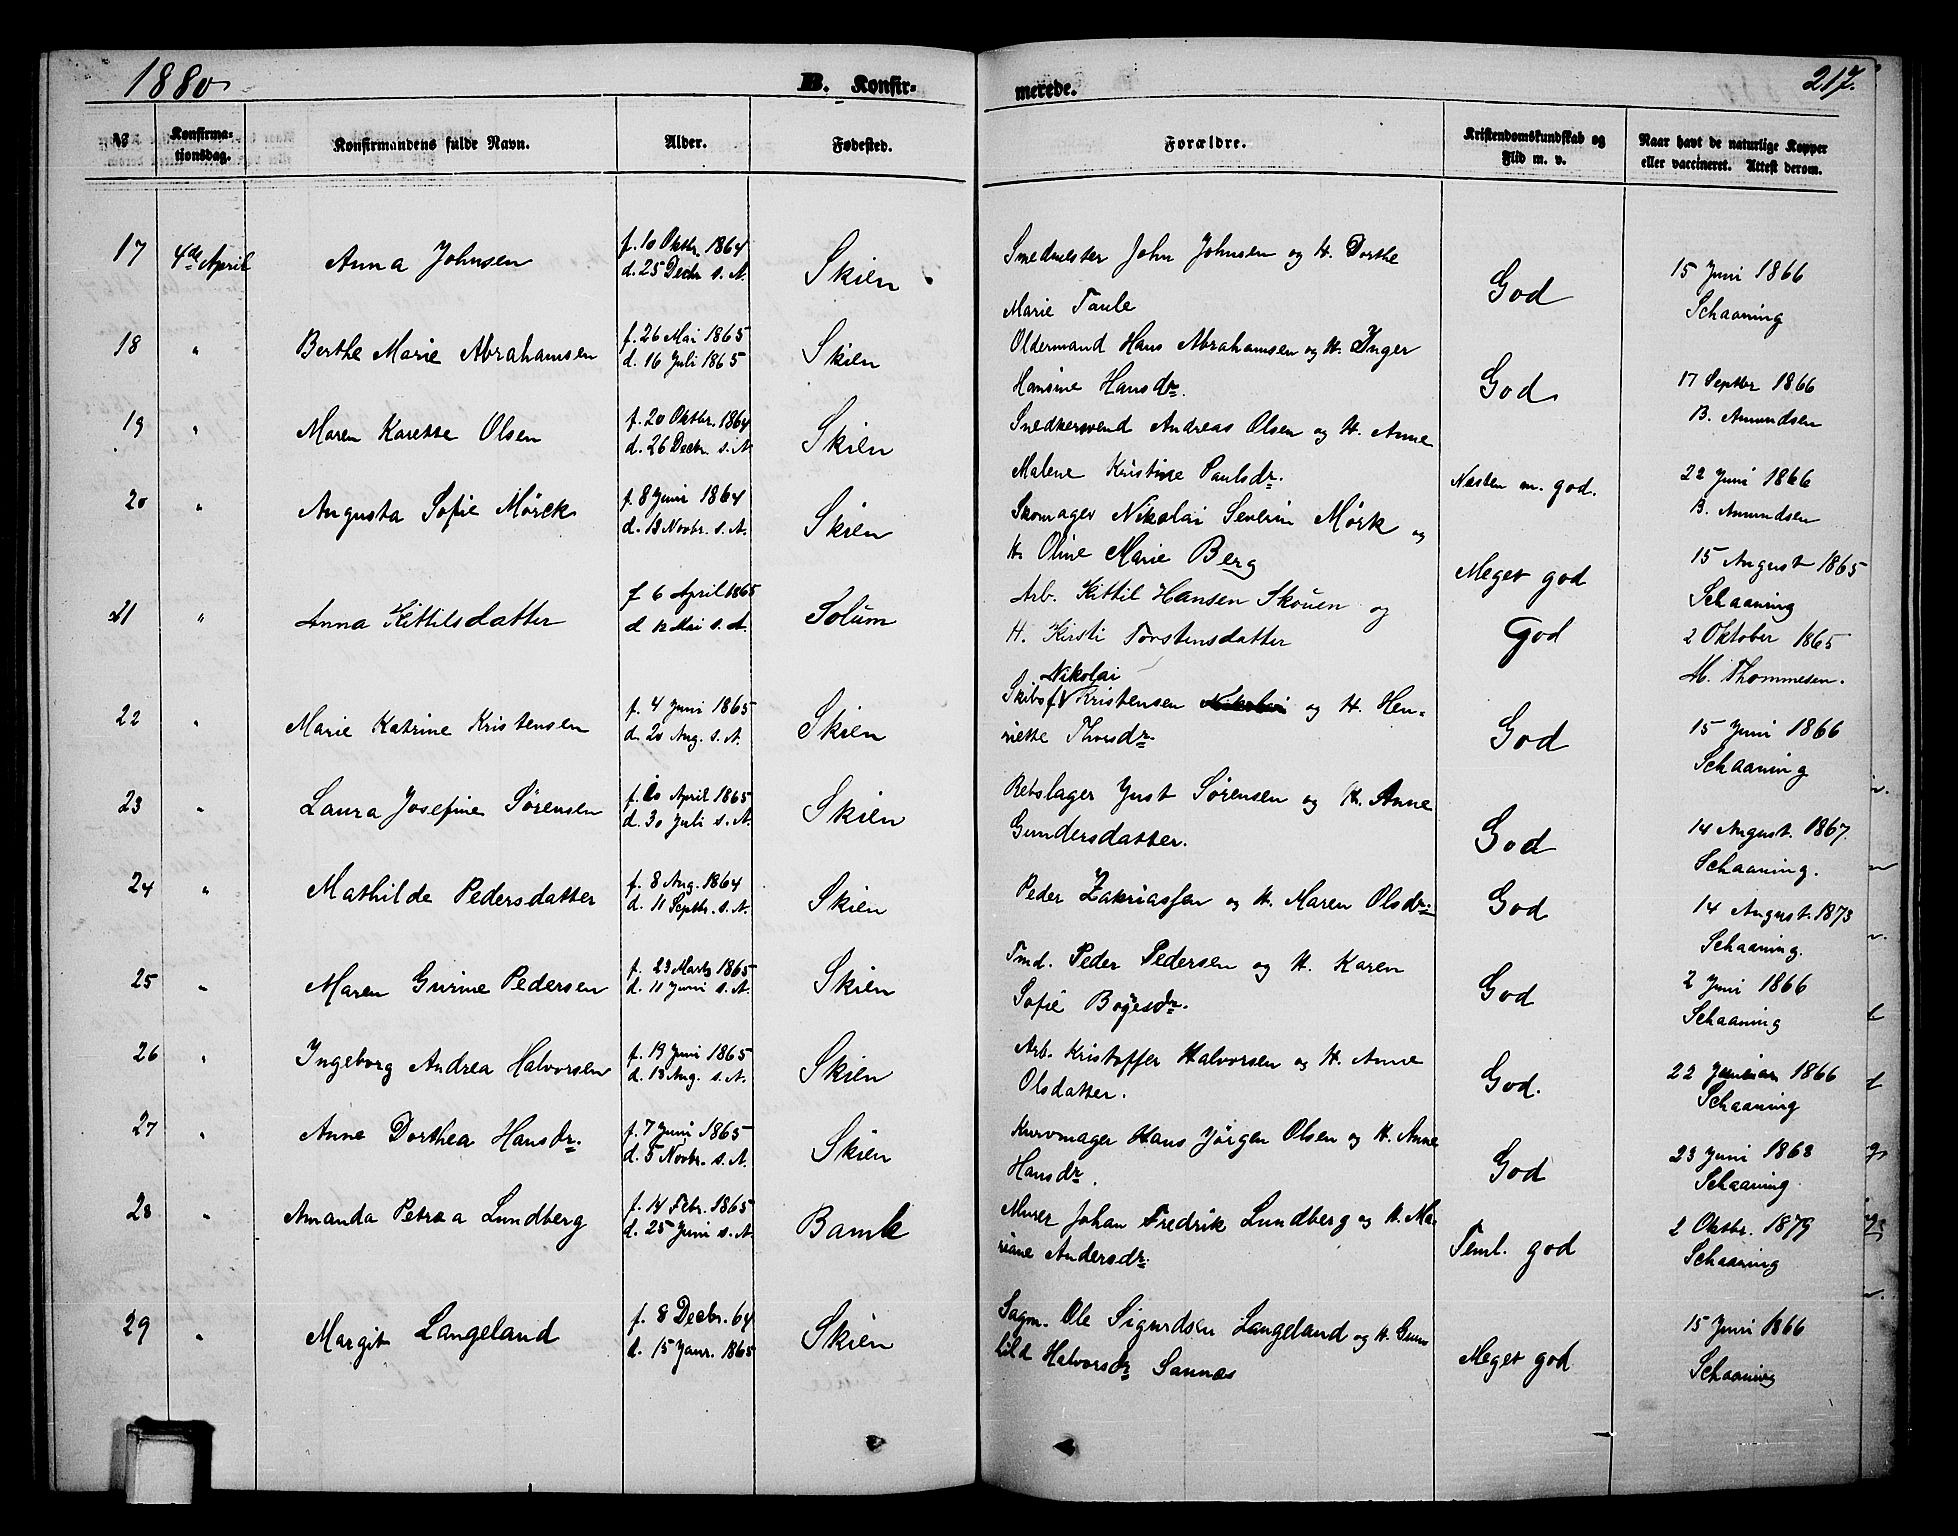 1880
B. Konfir-
merede.
217.
No
Konfirma-
tionsdag.
Konfirmandens fulde Navn.
Alder.
Fødested.
Forældre.
Kristendomskundskab og
Flid m. v.
Naar havt de naturlige Kopper
eller vaccineret. Attest derom.
17 4de April Anna Johnsen
f. 10 Oktbr. 1864
d. 25 Decbr s. A.
Skien
Smedmester John Johnsen og H. Dorthe
Marie Taule
God
15 Juni 1866
Schaaning
18 " Berthe Marie Abrahamsen
f. 26 Mai 1865
d. 16 Juli 1865
Skien
Oldermand Hans Abrahamsen og H. Inger
Hansine Hansdr.
God
17 Septbr 1866
B. Amundsen
19 " Maren Karette Olsen
f. 20 Oktbr. 1864
d. 26 Decbr. s. A
Skien
Snedkersvend Andreas Olsen og H. Anne
Malene Kristine Paulsdr.
Næsten m. god.
22 Juni 1866
B. Amundsen
20 " Augusta Sofie Mörck
f. 8 Juni 1864
d. 13 Novbr. s. A.
Skien
Skomager Nikolai Severin Mørk og
H. Oline Marie Berg
Meget god
15 August 1865
Schaaning
21 " Anna Kittilsdatter
f 6 April 1865
d 12 Mai s. A.
Solum
Arb. Kittil Hansen Skouen og
H. Kirsti Torstensdatter
God
2 Oktober 1865
M. Thommesen.
22 " Marie Katrine Kristensen
f. 4 Juni 1865
d. 20 Aug. s. A.
Skien
Nikolai
Skibsf. Kristensen Nikolai og H. Hen-
riette Thorsdr.
God
15 Juni 1866
Schaaning
23 " Laura Josefine Sørensen
f. 10 April 1865
d. 30 Juli s. A.
Skien
Rebslager Just Sørensen og H. Anne
Gundersdatter.
God
14 August. 1867.
Schaaning.
24 " Mathilde Pedersdatter
f. 8 Aug. 1864
d. 11 Septbr. s. A.
Skien
Peder Zakriassen og H. Maren Olsdr.
God
14 August. 1873
Schaaning.
25 " Maren Gurine Pedersen
f. 23 Marts 1865
d. 11 Juni s. A.
Skien
Tmd. Peder Pedersen og H. Karen
Sofie Boyesdr.
God
2 Juni 1866
Schaaning
26 " Ingeborg Andrea Halvorsen
f. 19 Juni 1865
d. 13 Aug. s. A.
Skien
Arb. Kristoffer Halvorsen og H. Anne
Olsdatter.
God.
22 Januar 1866
Schaaning
27 " Anne Dorthea Hansdr.
f. 7 Juni 1865
d. 5 Novbr. s. A.
Skien
Kurvmager Hans Jörgen Olsen og H. Anne
Hansdr.
God
23 Juni 1868
Schaaning
28 " Amanda Petrea Lundberg
f. 14 Febr. 1865
d. 25 Juni s. A.
Bamle
Murer Johan Fredrik Lundberg og H. Ma-
riane Andersdr.
Teml. god
2 Oktbr. 1879
Schaaning
29 " Margit Langeland
f. 8 Decbr. 64
d. 15 Janr. 1865
Skien
Sagm. Ole Sigurdsen Langeland og H. Gun-
hild Halvorsdr Sannæs
Meget god
15 Juni 1866
Schaaning